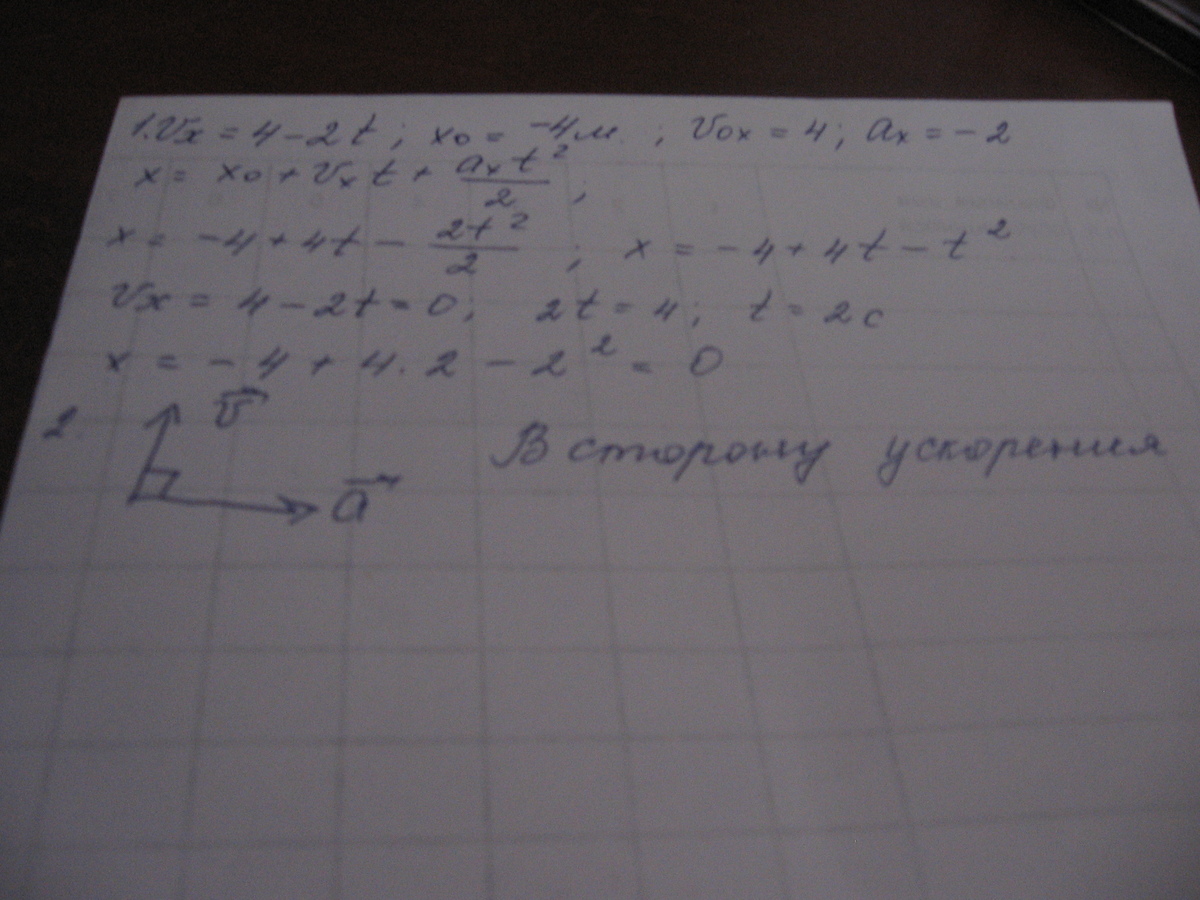 1. Vx = 4 - 2t ; x₀ = -4 м. ; V₀x = 4 ; ax = -2
x = x₀ + Vx t + ax t² / 2 ;
x = -4 + 4t - 2t² / 2 ; x = -4 + 4t - t²
Vx = 4 - 2t = 0 ; 2t = 4 ; t = 2 с
x = -4 + 4 · 2 - 2² = 0
2. v⃗ В сторону ускорения
a⃗